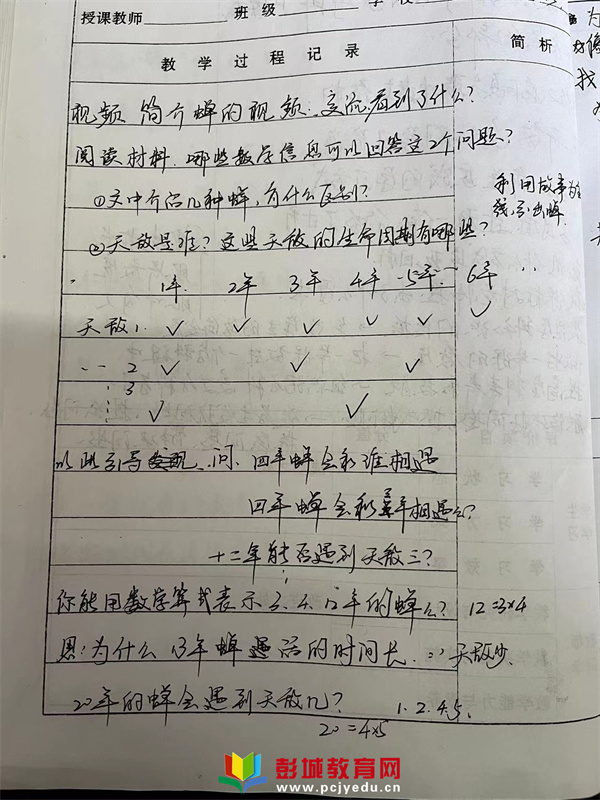 授课教师 班级
教学过程记录 简析
视频 简介蝉的视频：交流看到了什么？
阅读材料：哪些数学信息可以回答这2个问题？
①文中介绍几种蝉，有什么区别？
利用故事为主
线，引出蝉
②天敌是谁？这些天敌的生命周期有哪些？
1年 2年 3年 4年 5年 6年
天敌1. ✓ ✓ ✓ ✓ ✓ ✓
2 ✓ ✓ ✓
3 ✓ ✓
以此引导 问：四年蝉会和谁相遇
四年蝉会和 年相遇么？
十二年能否遇到天敌三？
你能用数学算式表示3、4、12年的蝉么？ 12=3×4
思：为什么13年蝉 活的时间长. ∵天敌少.
20年的蝉会遇到天敌几？ 1.2.4.5.
20=4×5
彭城教育网
www.pcjyedu.cn